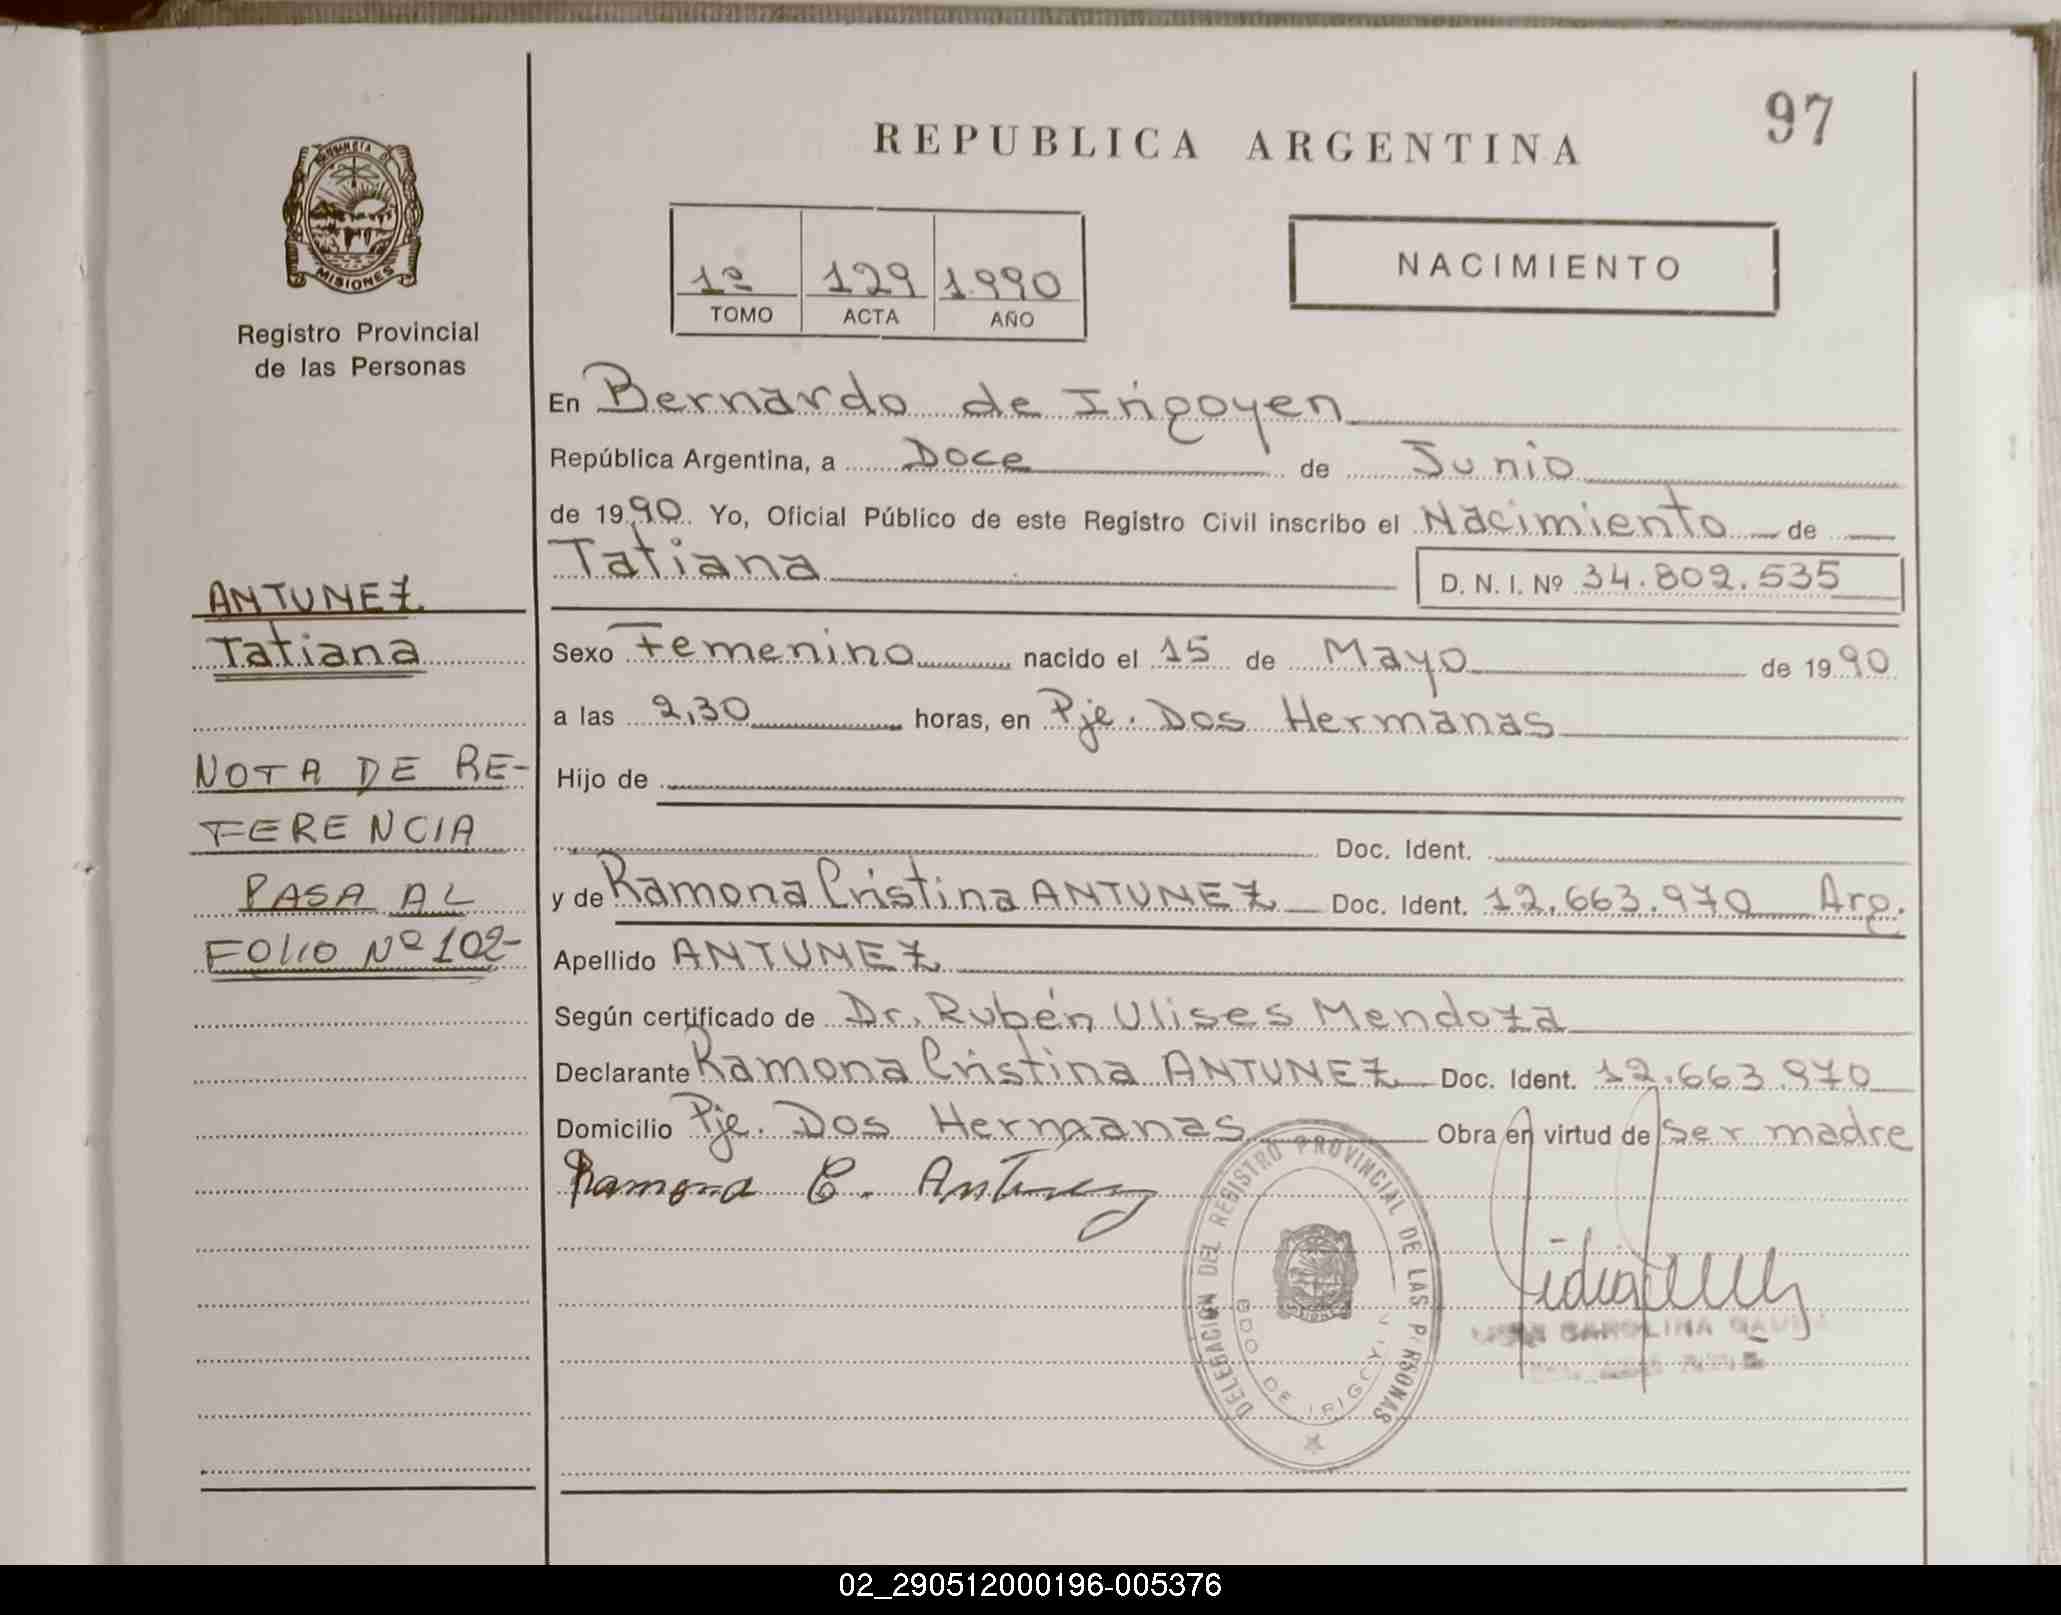 97
REPUBLICA ARGENTINA
MISIONES
Registro Provincial
de las Personas
1º 129 1.990
TOMO ACTA AÑO
NACIMIENTO
En Bernardo de Irigoyen
República Argentina, a Doce de Junio
de 1990. Yo, Oficial Público de este Registro Civil inscribo el Nacimiento de
Tatiana D. N. I. Nº 34.802.535
Sexo Femenino nacido el 15 de Mayo de 1990
a las 2,30 horas, en Pje. Dos Hermanas
Hijo de
Doc. Ident.
y de Ramona Cristina ANTUNEZ Doc. Ident. 12.663.970 Arg.
Apellido ANTUNEZ
Según certificado de Dr. Rubén Ulises Mendoza
Declarante Ramona Cristina ANTUNEZ Doc. Ident. 12.663.970
Domicilio Pje. Dos Hermanas Obra en virtud de Ser madre
Ramona C. Antunez
ANTUNEZ
Tatiana
NOTA DE RE-
FERENCIA
PASA AL
FOLIO Nº 102-
DELEGACION DEL REGISTRO PROVINCIAL DE LAS PERSONAS
BDO. DE IRIGOYEN
CAROLINA
02_290512000196-005376